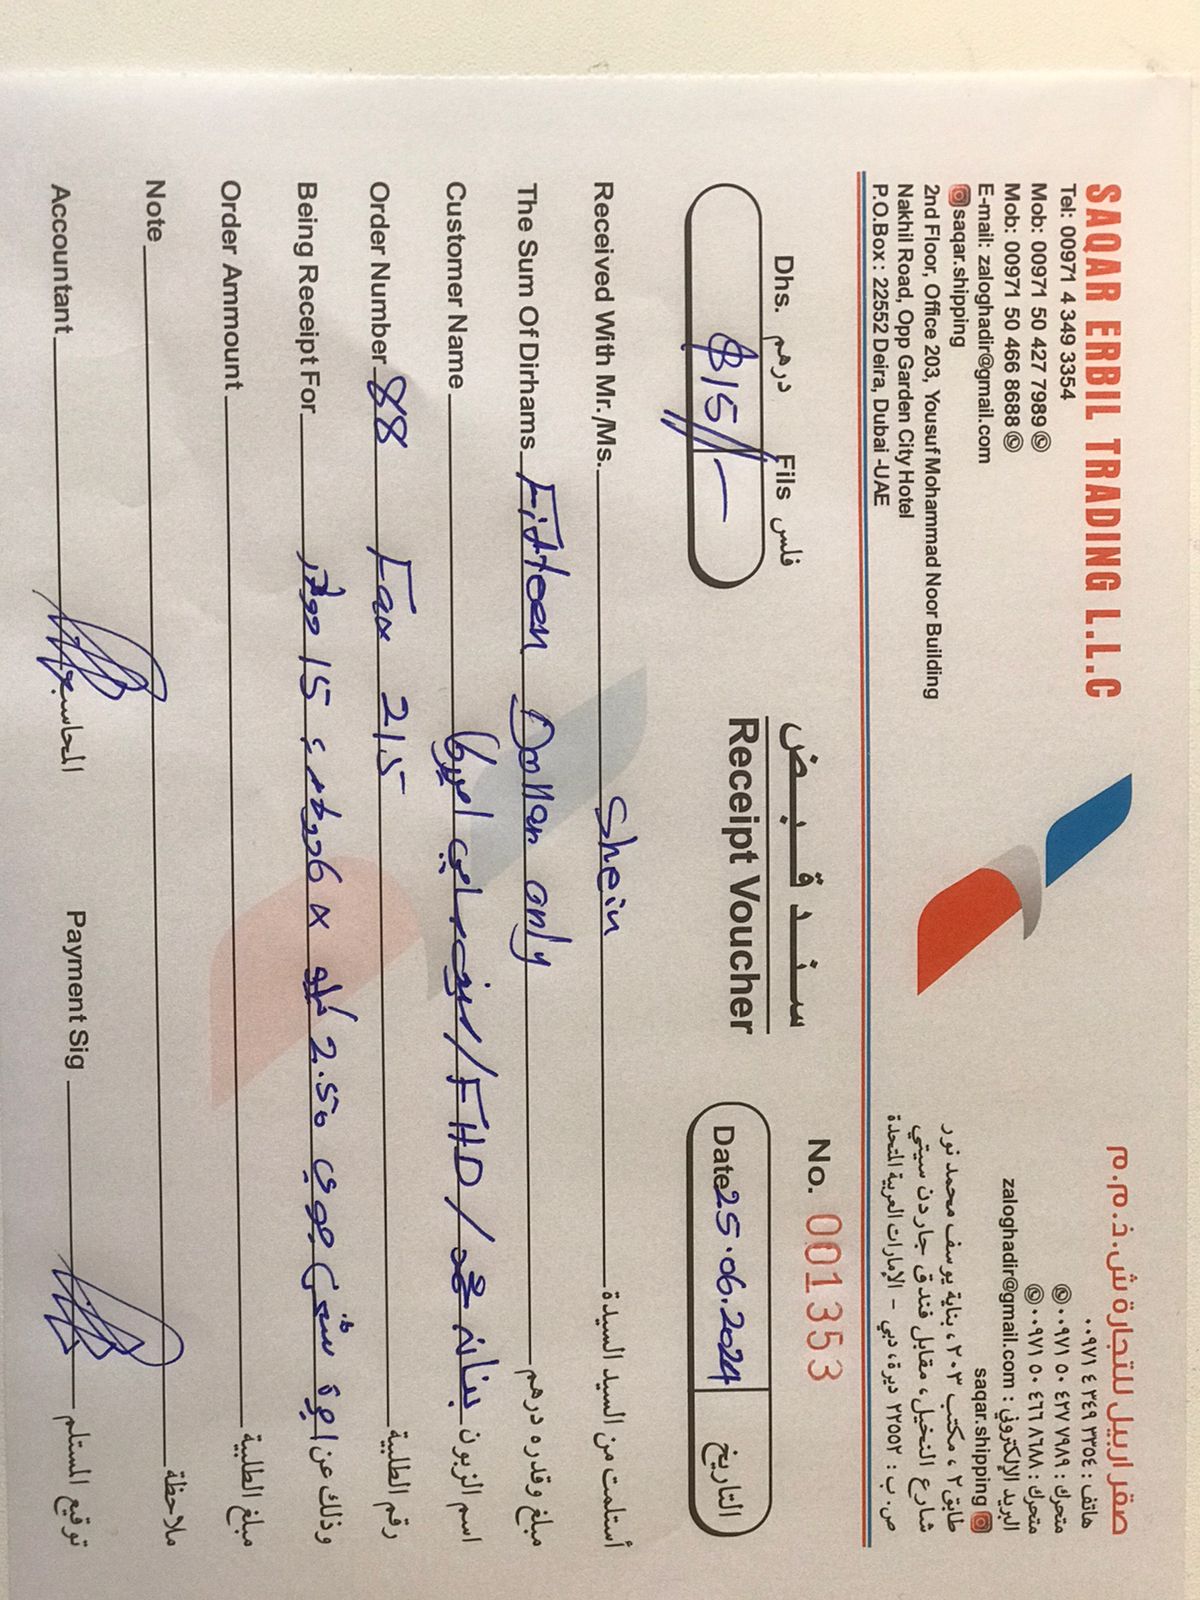 SAQAR ERBIL TRADING L.L.C
Tel: 00971 4 349 3354
Mob: 00971 50 427 7989
Mob: 00971 50 466 8688
E-mail: zaloghadir@gmail.com
saqar.shipping
2nd Floor, Office 203, Yousuf Mohammad Noor Building
Nakhil Road, Opp Garden City Hotel
P.O.Box: 22552 Deira, Dubai -UAE
صقر اربيل للتجارة ش.ذ.م.م
هاتف : ٠٠٩٧١ ٤ ٣٤٩ ٣٣٥٤
متحرك : ٠٠٩٧١ ٥٠ ٤٢٧ ٧٩٨٩
متحرك : ٠٠٩٧١ ٥٠ ٤٦٦ ٨٦٨٨
البريد الإلكتروني : zaloghadir@gmail.com
saqar.shipping
طابق ٢ ، مكتب ٢٠٣ ، بناية يوسف محمد نور
شارع النخيل ، مقابل فندق جاردن سيتي
ص. ب : ٢٢٥٥٢ ديرة، دبي - الإمارات العربية المتحدة
Dhs. درهم Fils فلس
$15/-
سند قبض
Receipt Voucher
No. 001353
Date 25.06.2024 التاريخ
Received With Mr./Ms. Shein أستلمت من السيد السيدة
The Sum Of Dirhams Fifteen Dollar only مبلغ وقدره درهم
Customer Name بنانه محمد / FHD / امريكا اسم الزبون
Order Number 88 Fax 21.5 رقم الطلبية
Being Receipt For اجرة شحن جوي 2.50 كيلو x 6 15 دولار وذلك عن
Order Ammount مبلغ الطلبية
Note ملاحظة
Accountant المحاسب Payment Sig توقيع المستلم